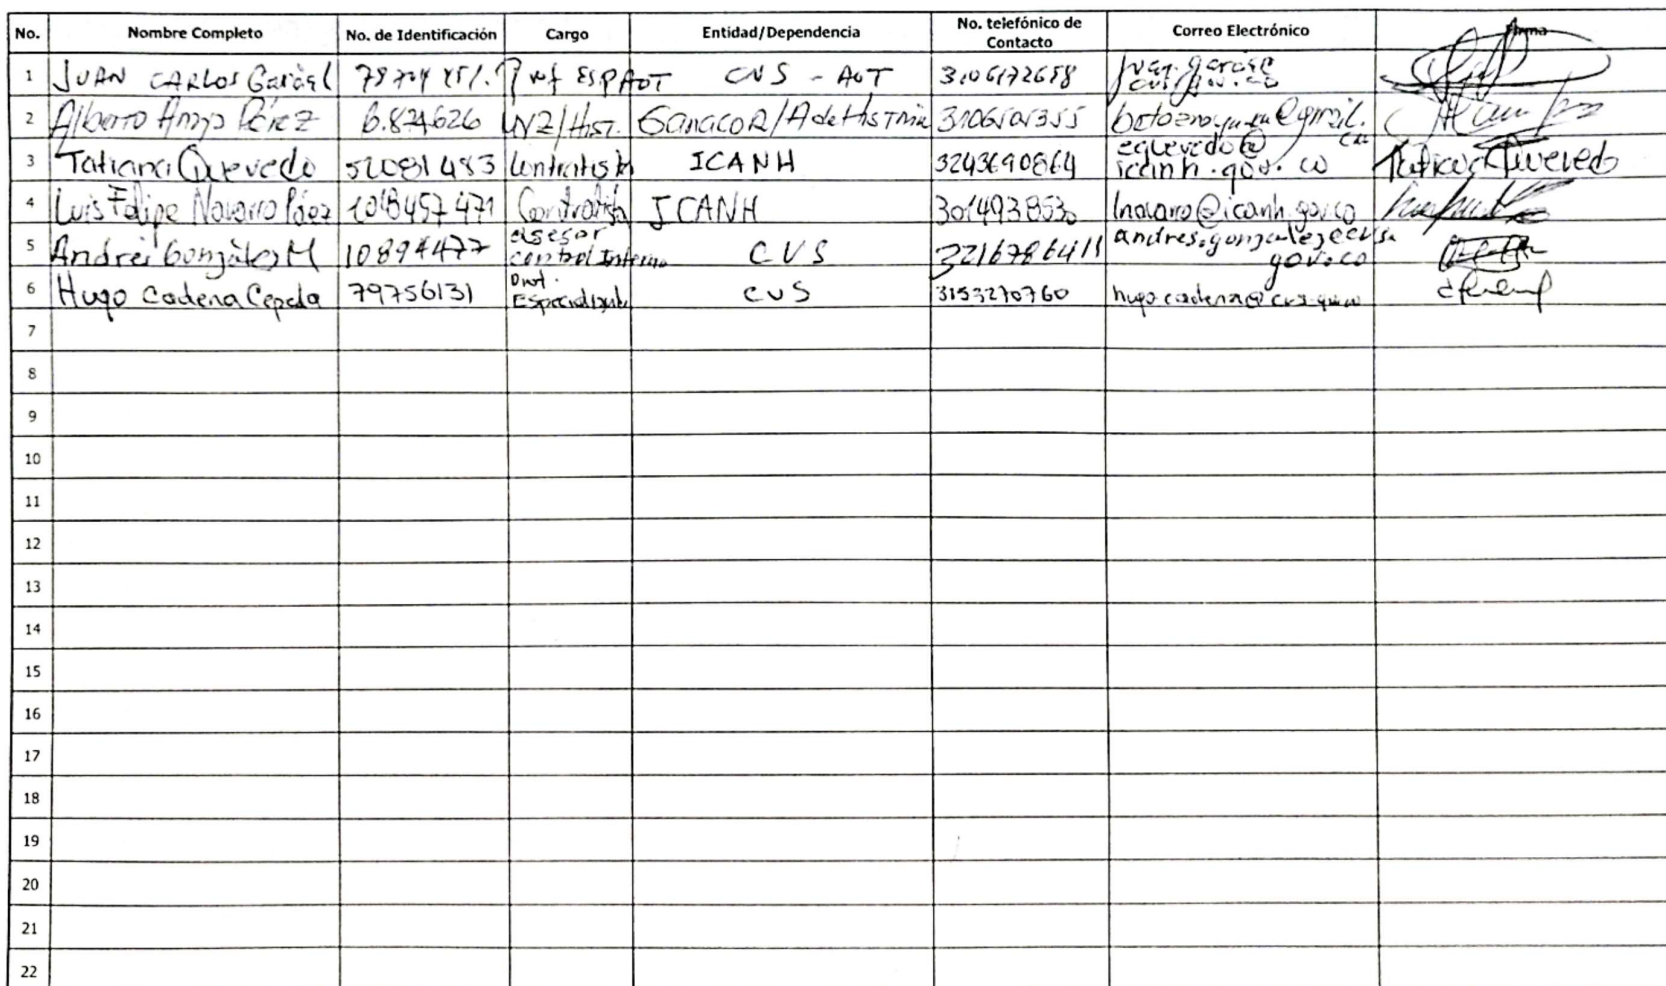 No. Nombre Completo No. de Identificación Cargo Entidad/Dependencia No. telefónico de Contacto Correo Electrónico Firma
1 JUAN CARLOS ESP AOT CVS - AOT 3106172658
2 Alberto Pérez 6.874626 /Hist. 3106501355
3 Tatiana Quevedo 52081483 Contratista ICANH 3243690864 eqquevedo@icanh.gov.co Tatiana Quevedo
4 Luis Felipe Navarro Páez 1018457471 Contratista ICANH 3014938530 lnavarro@icanh.gov.co
5 Andrés González M 10894477 asesor control Interno CVS 3216786411 andres.gonzalez@cvs.gov.co
6 Hugo Cadena Cepeda 79756131 CVS 3153270760 hugo.cadena@cvs.gov.co
7
8
9
10
11
12
13
14
15
16
17
18
19
20
21
22